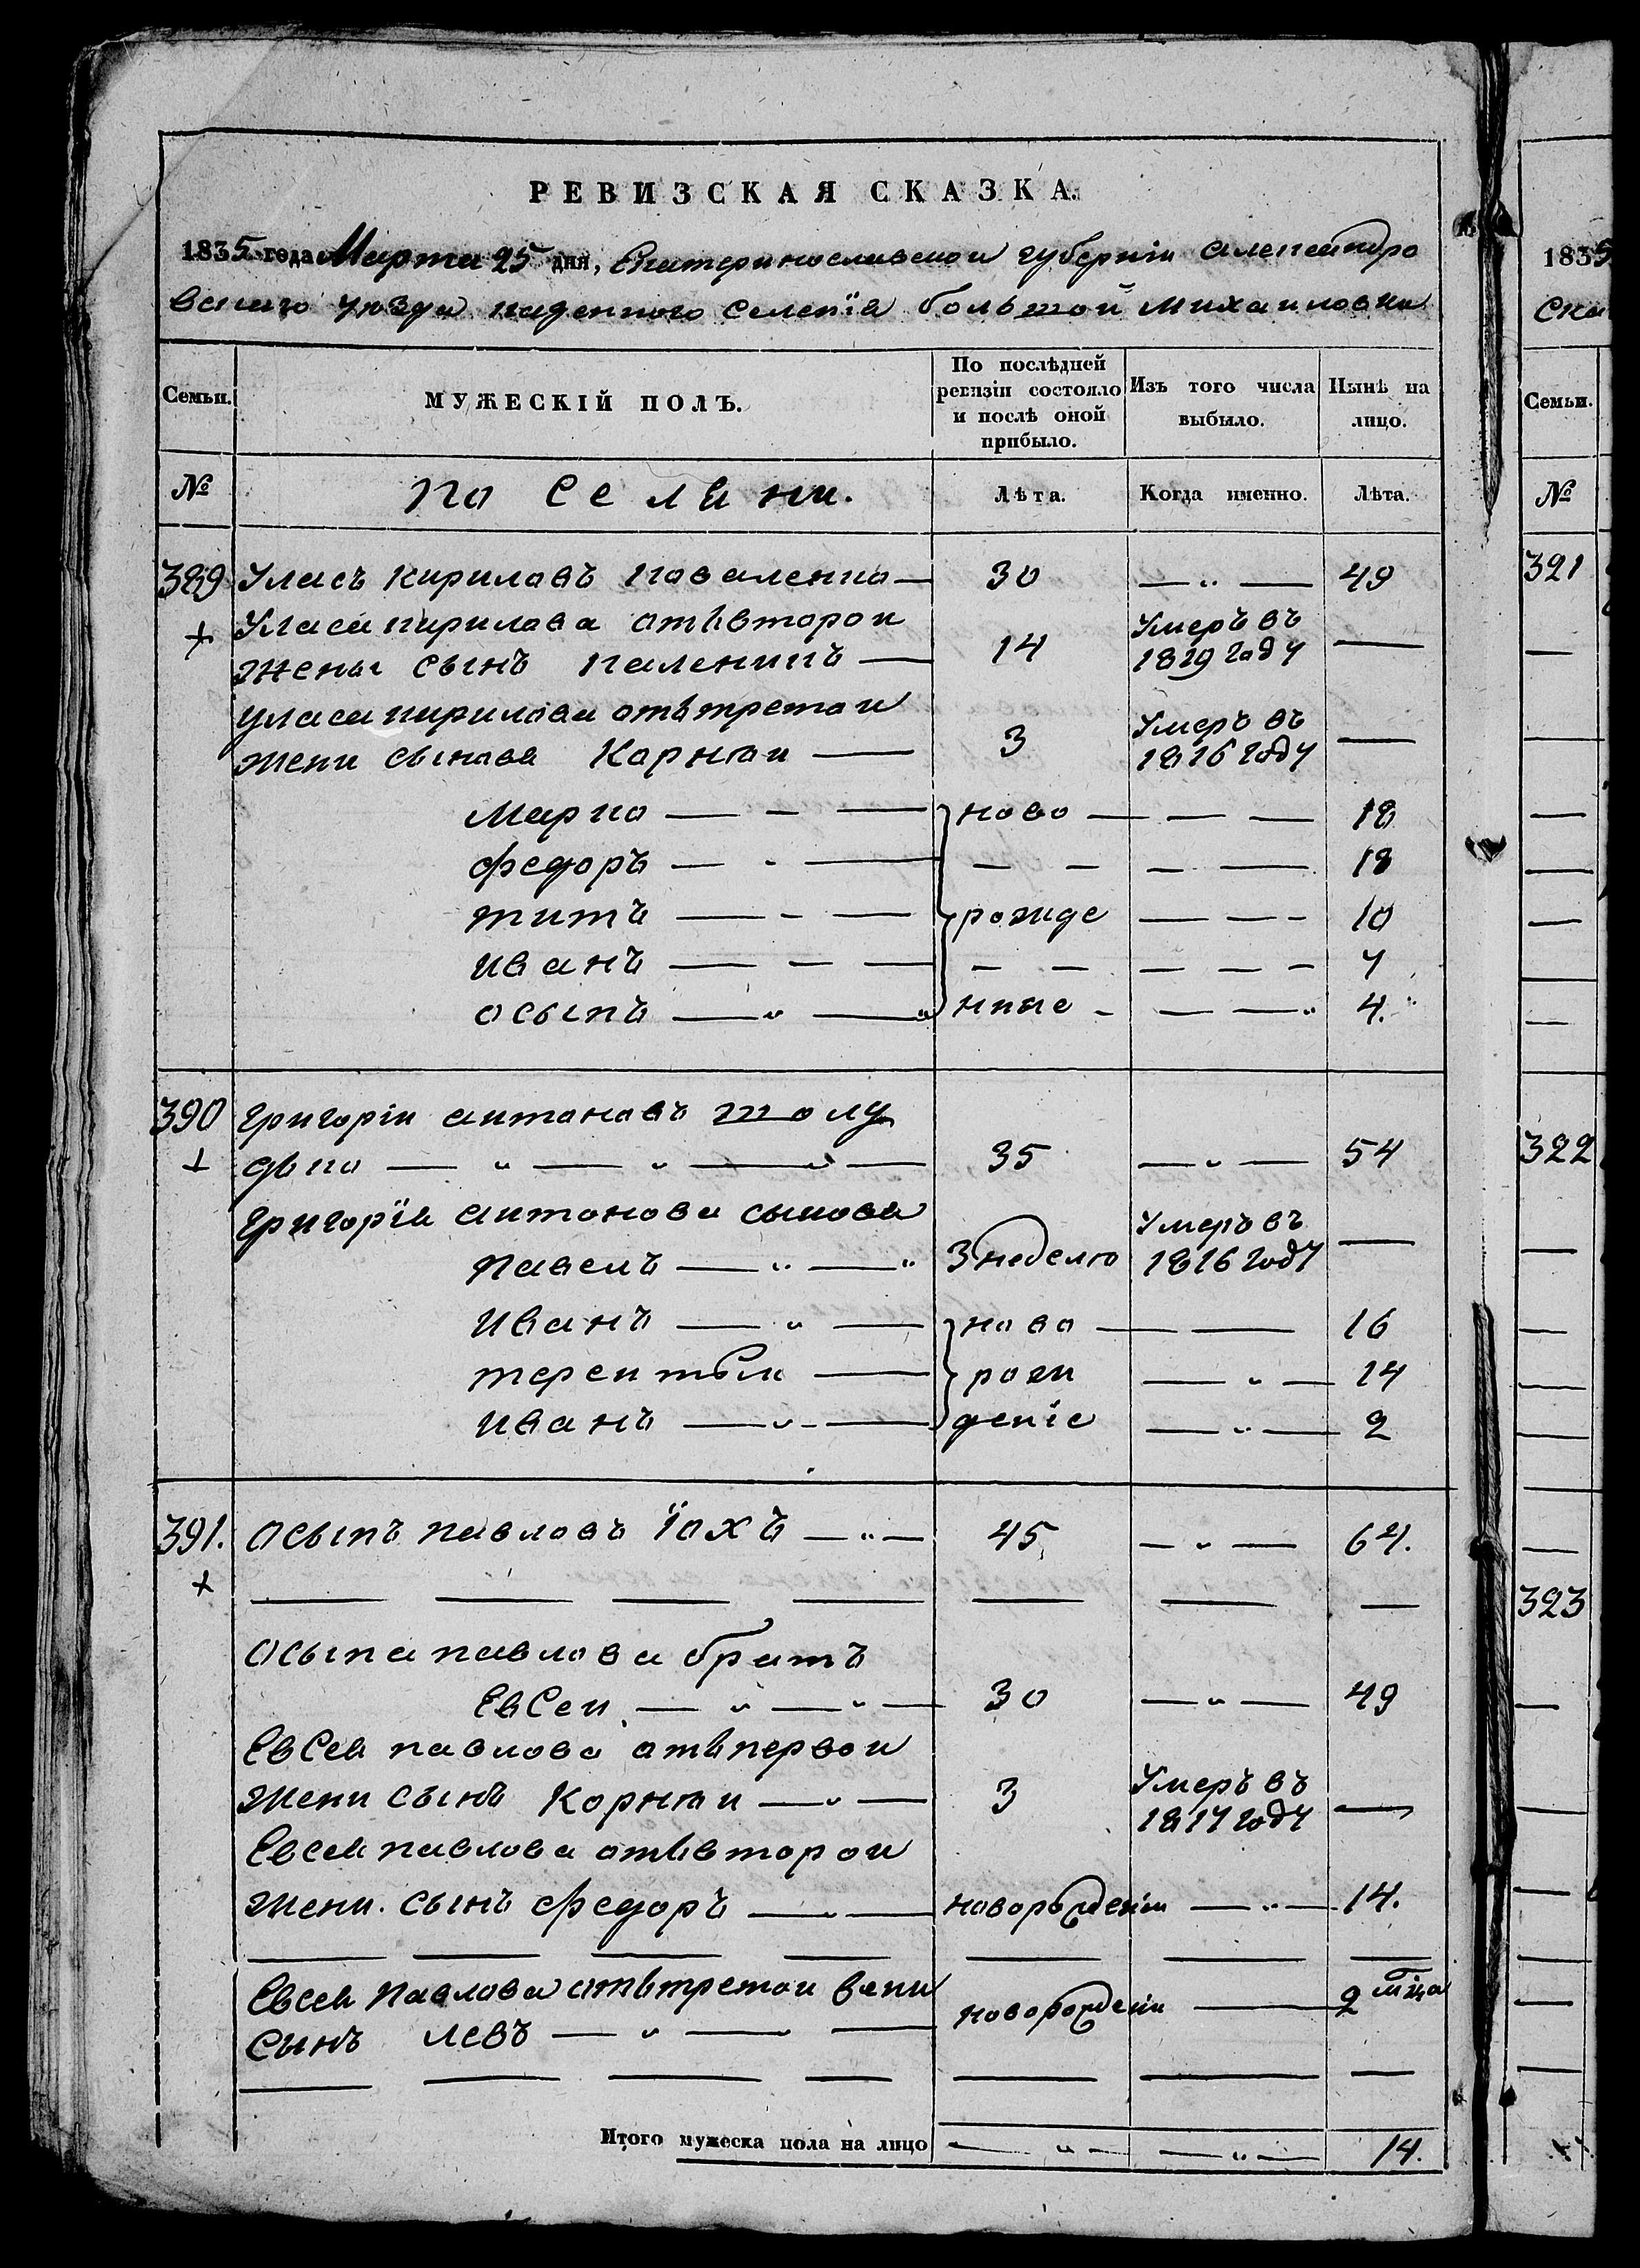 РЕВИЗСКАЯ СКАЗКА.
1835 года Марта 25 дня, Екатеринославской губерніи александро
вскаго уезда казенного селенія большой михаиловки
Семьи.
МУЖЕСКІЙ ПОЛЪ.
По послѣдней ревизіи состояло и послѣ оной прибыло.
Изъ того числа выбыло.
Нынѣ на лицо.
№
по Селяни.
Лѣта.
Когда именно.
Лѣта.
389 Уласъ кириловъ коваленко — 30 — 49
+ Уласа кирилова отъ второи
жены сынъ каленикъ — 14 Умеръ въ 1829 году —
уласа кирилова отъ третои
жени сынова Корнѣи — 3 Умеръ въ 1816 году —
Марко — ново — 18
федоръ — 18
титъ — рожде — 10
иванъ — 7
осыпъ — нные — 4.
390 григоріи антоновъ толд
+ дыко — 35 — 54
григорія антонова сынова
павелъ — 3 неделю Умеръ въ 1816 году —
иванъ — ново — 16
терентѣи — рож — 14
иванъ — деніе — 2
391. осыпъ павловъ їохъ — 45 — 64.
+
осыпа павлова братъ
Евсеи — 30 — 49
Евсея павлова отъ первои
жени сынъ Корнѣи — 3 Умеръ въ 1817 году —
Евсея павлова отъ второи
жени. сынъ федоръ — новорожденіи — 14.
Евсея павлова отъ третои жени
сынъ левъ — новорождени — 2 мца
Итого мужеска пола на лицо — 14.
1835
Ска
Семьи.
№
321
322
323